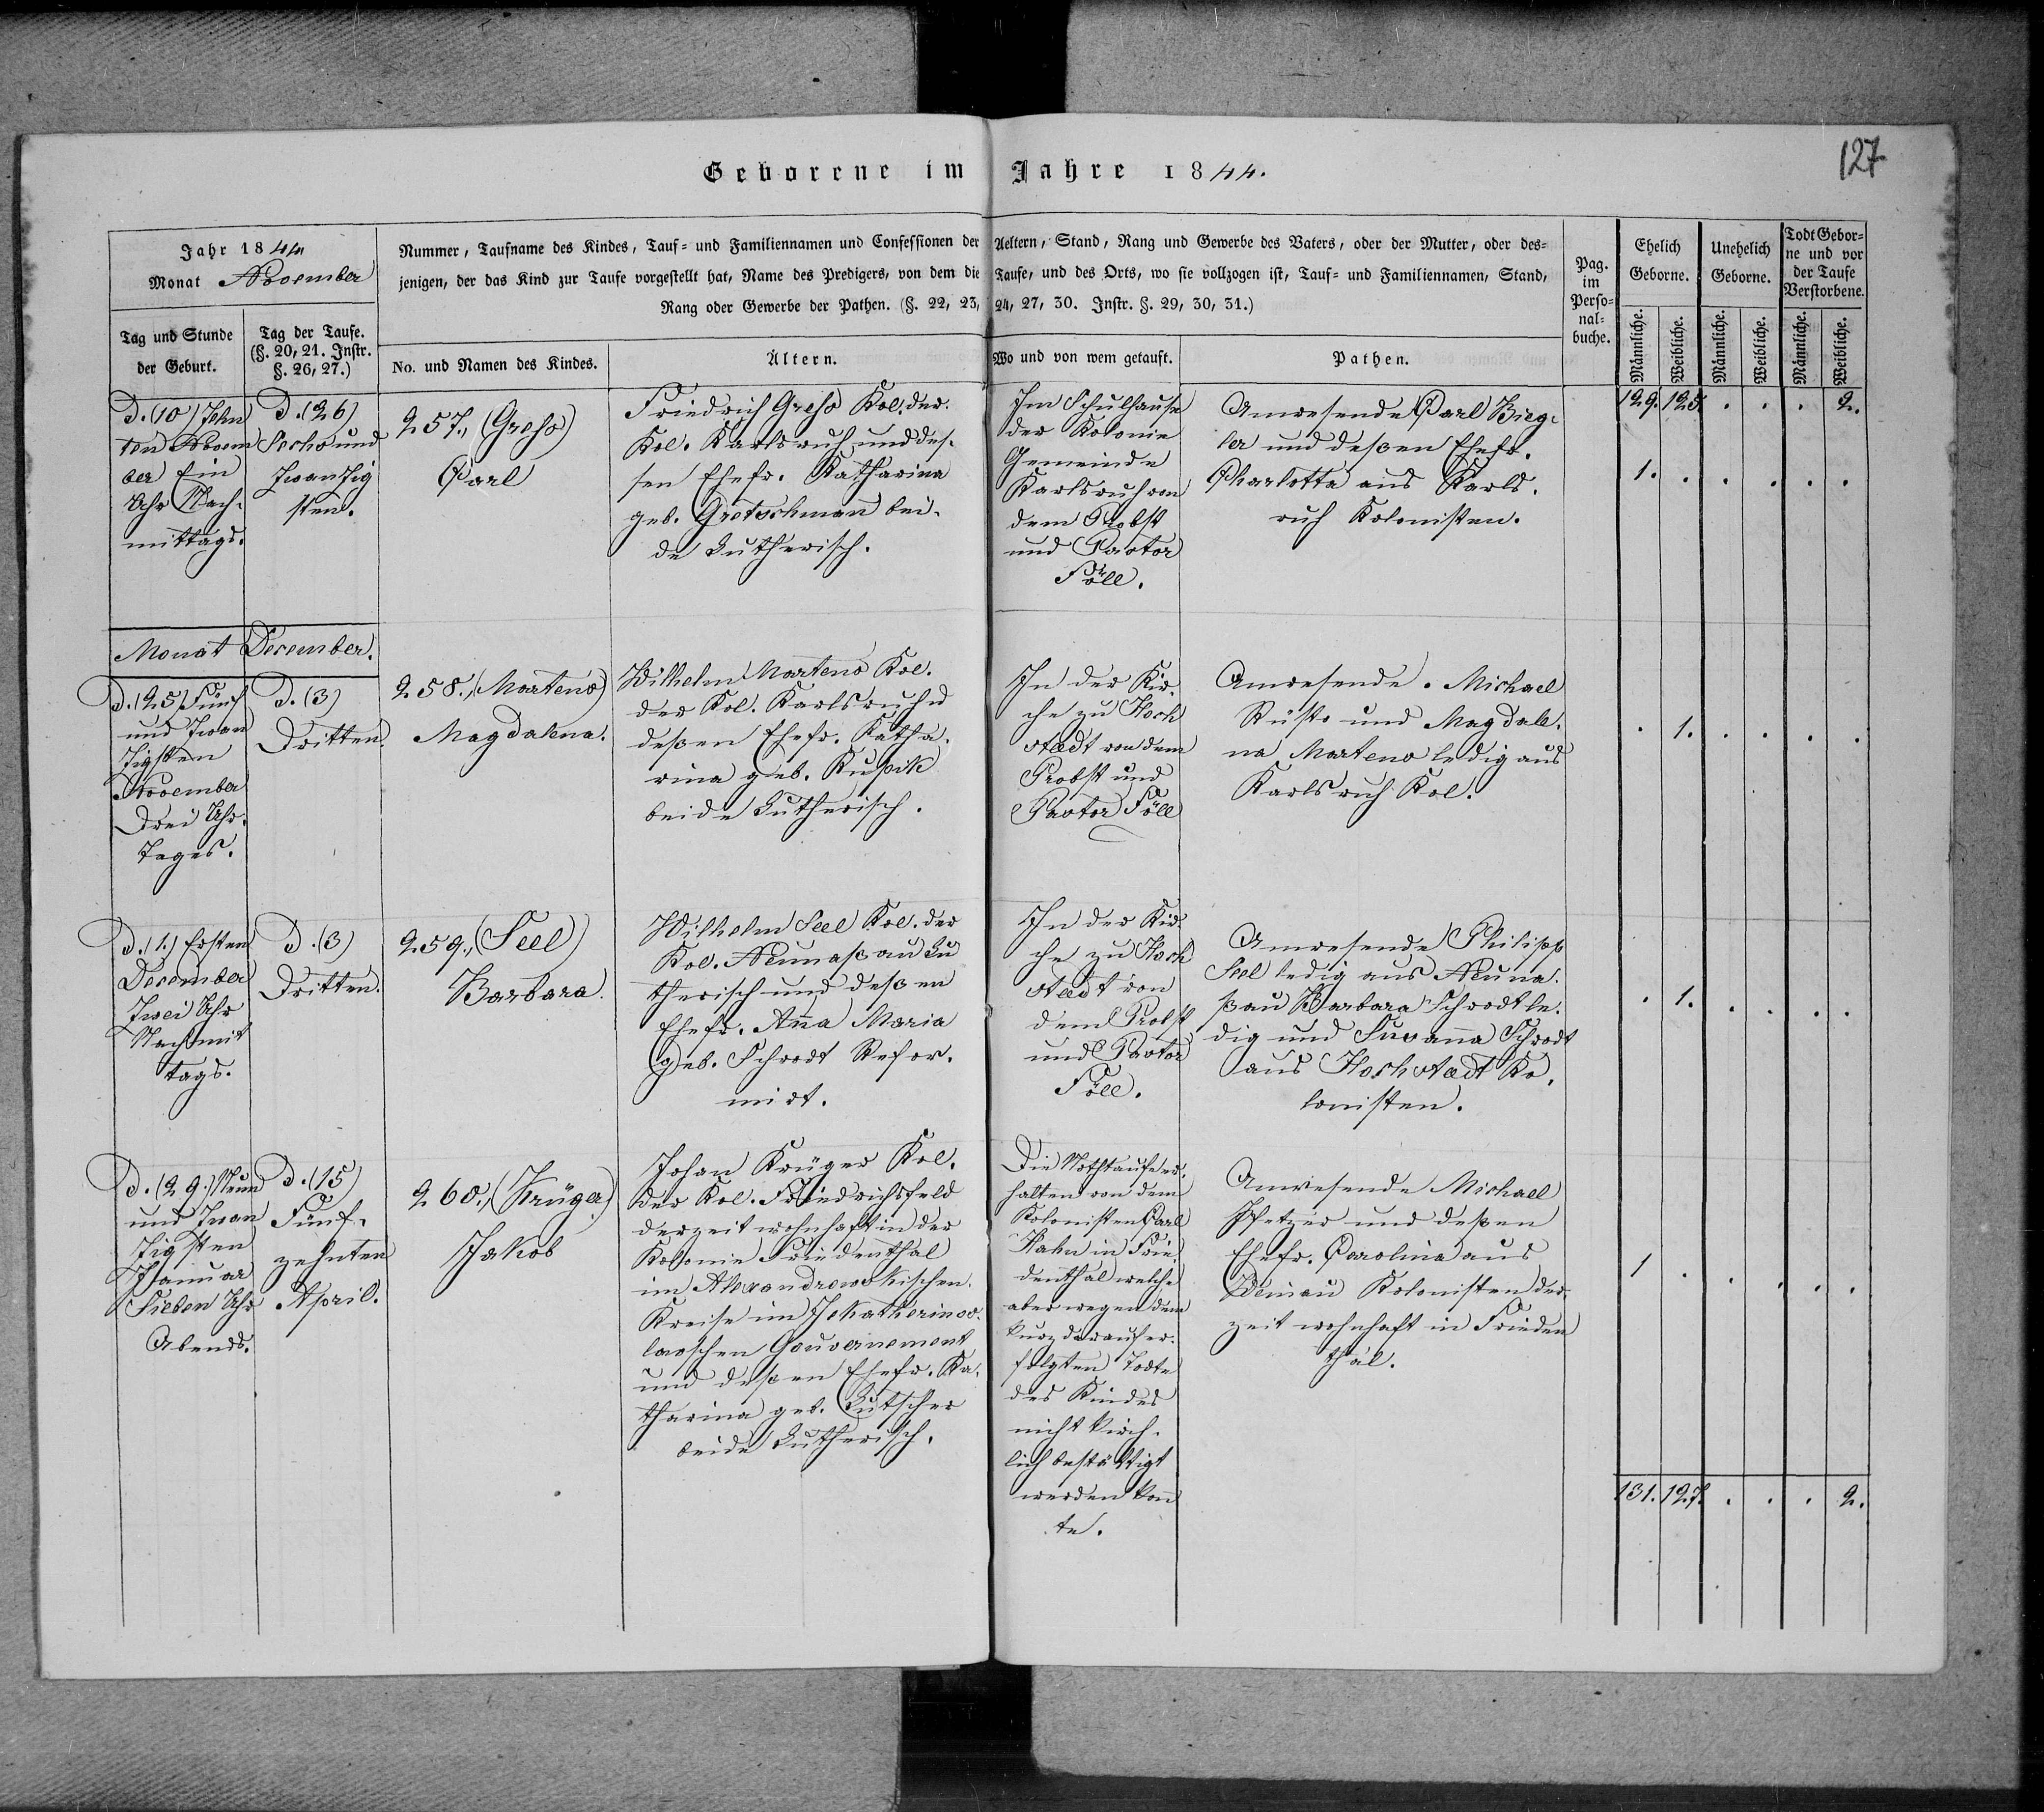 127
Geborene im Jahre 1844.
Jahr 1844
Monat November
Nummer, Taufname des Kindes, Tauf- und Familiennamen und Confessionen der Aeltern, Stand, Rang und Gewerbe des Vaters, oder der Mutter, oder des-
jenigen, der das Kind zur Taufe vorgestellt hat, Name des Predigers, von dem die Taufe, und des Orts, wo sie vollzogen ist, Tauf- und Familiennamen, Stand,
Rang oder Gewerbe der Pathen. (§. 22, 23, 24, 27, 30. Instr. §. 29, 30, 31.)
Pag.
im
Perso-
nal-
buche.
Ehelich
Geborne.
Unehelich
Geborne.
Todt Gebor-
ne und vor
der Taufe
Verstorbene.
Tag und Stunde
der Geburt.
Tag der Taufe.
(§. 20, 21. Instr.
§. 26, 27.)
No. und Namen des Kindes.
Ältern.
Wo und von wem getauft.
Pathen.
Männliche.
Weibliche.
Männliche.
Weibliche.
Männliche.
Weibliche.
D. (10) Zehn
ten Novem
ber Ein
Uhr Nach-
mittags.
D. (26)
Sechs und
Zwanzig
sten.
257., (Gress)
Carl
Friedrich Gress Kol. der
Kol. Karlsruh und des-
sen Ehefr. Katharina
geb. Gretschman bei-
de Lutherisch.
Im Schulhause
der Kolonie
Gemeinde
Karlsruh von
dem Probst
und Pastor
Föll.
Anwesende Carl Bieg-
ler und deßen Ehefr.
Charlotta aus Karls-
ruh Kolonisten.
129. 125. . . . 2.
1. . . . . .
Monat December.
D. (25) Fünf
und Zwan
zigsten
November
Drei Uhr
Tages.
D. (3)
Dritten.
258., (Martens)
Magdalena.
Wilhelm Martens Kol.
der Kol. Karlsruh u
deßen Ehefr. Katha-
rina geb. Kußik
beide Lutherisch.
In der Kir-
che zu Hoch
stædt von dem
Probst und
Pastor Föll
Anwesende. Michael
Rüstr und Magdale-
na Martens ledig aus
Karlsruh Kol.
. 1. . . . .
D. (1.) Ersten
December
Zwei Uhr
Nachmit
tags.
D. (3)
Dritten.
259., (Seel)
Barbara.
Wilhelm Seel Kol. der
Kol. Neunaßau Lu
therisch und deßen
Ehefr. Anna Maria
geb. Schrodt Refor-
mirt.
In der Kir-
che zu Hoch
stædt von
dem Probst
und Pastor
Föll.
Anwesende Philipp
Seel ledig aus Neuna-
ßau Barbara Schrodt le-
dig und Susanna Schrodt
aus Hochstædt Ko-
lonisten.
. 1. . . . .
D. (29.) Neun
und Zwan
zigsten
Januar
Sieben Uhr
Abends.
D. (15)
Fünf-
zehnten
April.
260., (Krüger)
Jakob
Johan Krüger Kol.
der Kol. Friedrichsfeld
derzeit wohnhaft in der
Kolonie Friedenthal
im Alexandrowskischen
Kreise im Jekatherinos-
lawschen Gouvernement
und deßen Ehefr. Ka-
tharina geb. Lutscher
beide Lutherisch.
Die Nothtaufe er-
halten von dem
Kolonisten Carl
Hahn in Frie-
denthal welche
aber wegen dem
kurz darauf er-
folgten Tode
des Kindes
nicht kirch-
lich bestättigt
werden konn
te.
Anwesende Michael
und deßen
Ehefr. Carolina aus
Kolonisten der-
zeit wohnhaft in Frieden
thal.
1 . . . . .
131. 127. . . . 2.